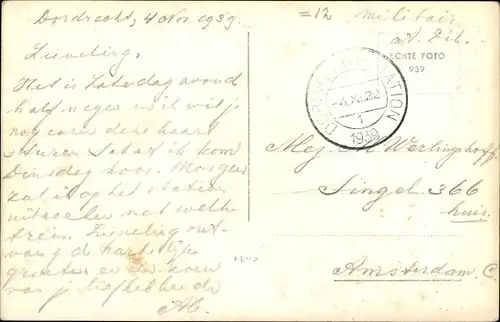 Dordrecht, 4 Nov. 1939
Lieveling,
Het is Zaterdag avond
half negen en ik wil je
nog even deze kaart
sturen Schat ik kom
Dinsdag hoor. Morgen
zal ik op het station
met welke
trein. Lieveling ont-
vang de hartelijke
groeten en een zoen
van je liefhebbende
militair
ECHTE FOTO
939
DORDRECHT-STATION
-4.XI.22
1
1939
Mej.
Singel 366
huis.
Amsterdam. C.